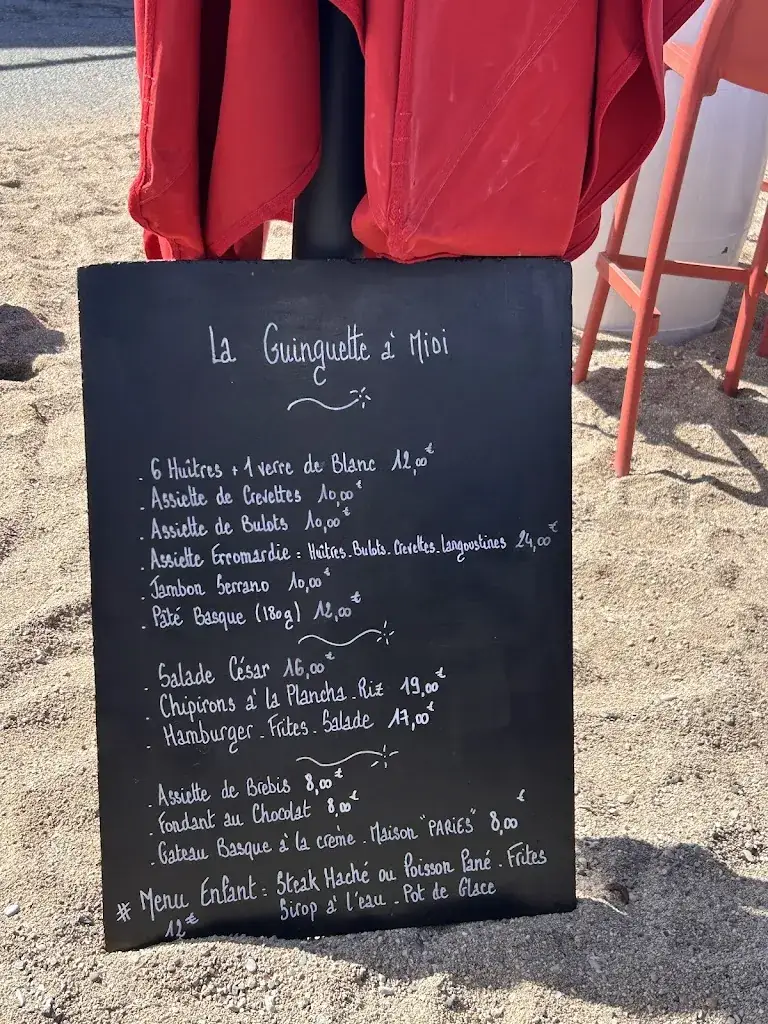 La Guinguette à Midi
. 6 Huîtres + 1 verre de Blanc 12,00€
. Assiette de Crevettes 10,00€
. Assiette de Bulots 10,00€
. Assiette Erromardie : Huîtres. Bulots. Crevettes. Langoustines 24,00€
. Jambon Serrano 10,00€
. Pâté Basque (180g) 12,00€
. Salade César 16,00€
. Chipirons à la Plancha. Riz 19,00€
. Hamburger. Frites. Salade 17,00€
. Assiette de Brebis 8,00€
. Fondant au Chocolat 8,00€
. Gateau Basque à la crème. Maison "PARIES" 8,00€
* Menu Enfant : Steak Haché ou Poisson Pané. Frites
12€ Sirop à l'eau. Pot de Glace